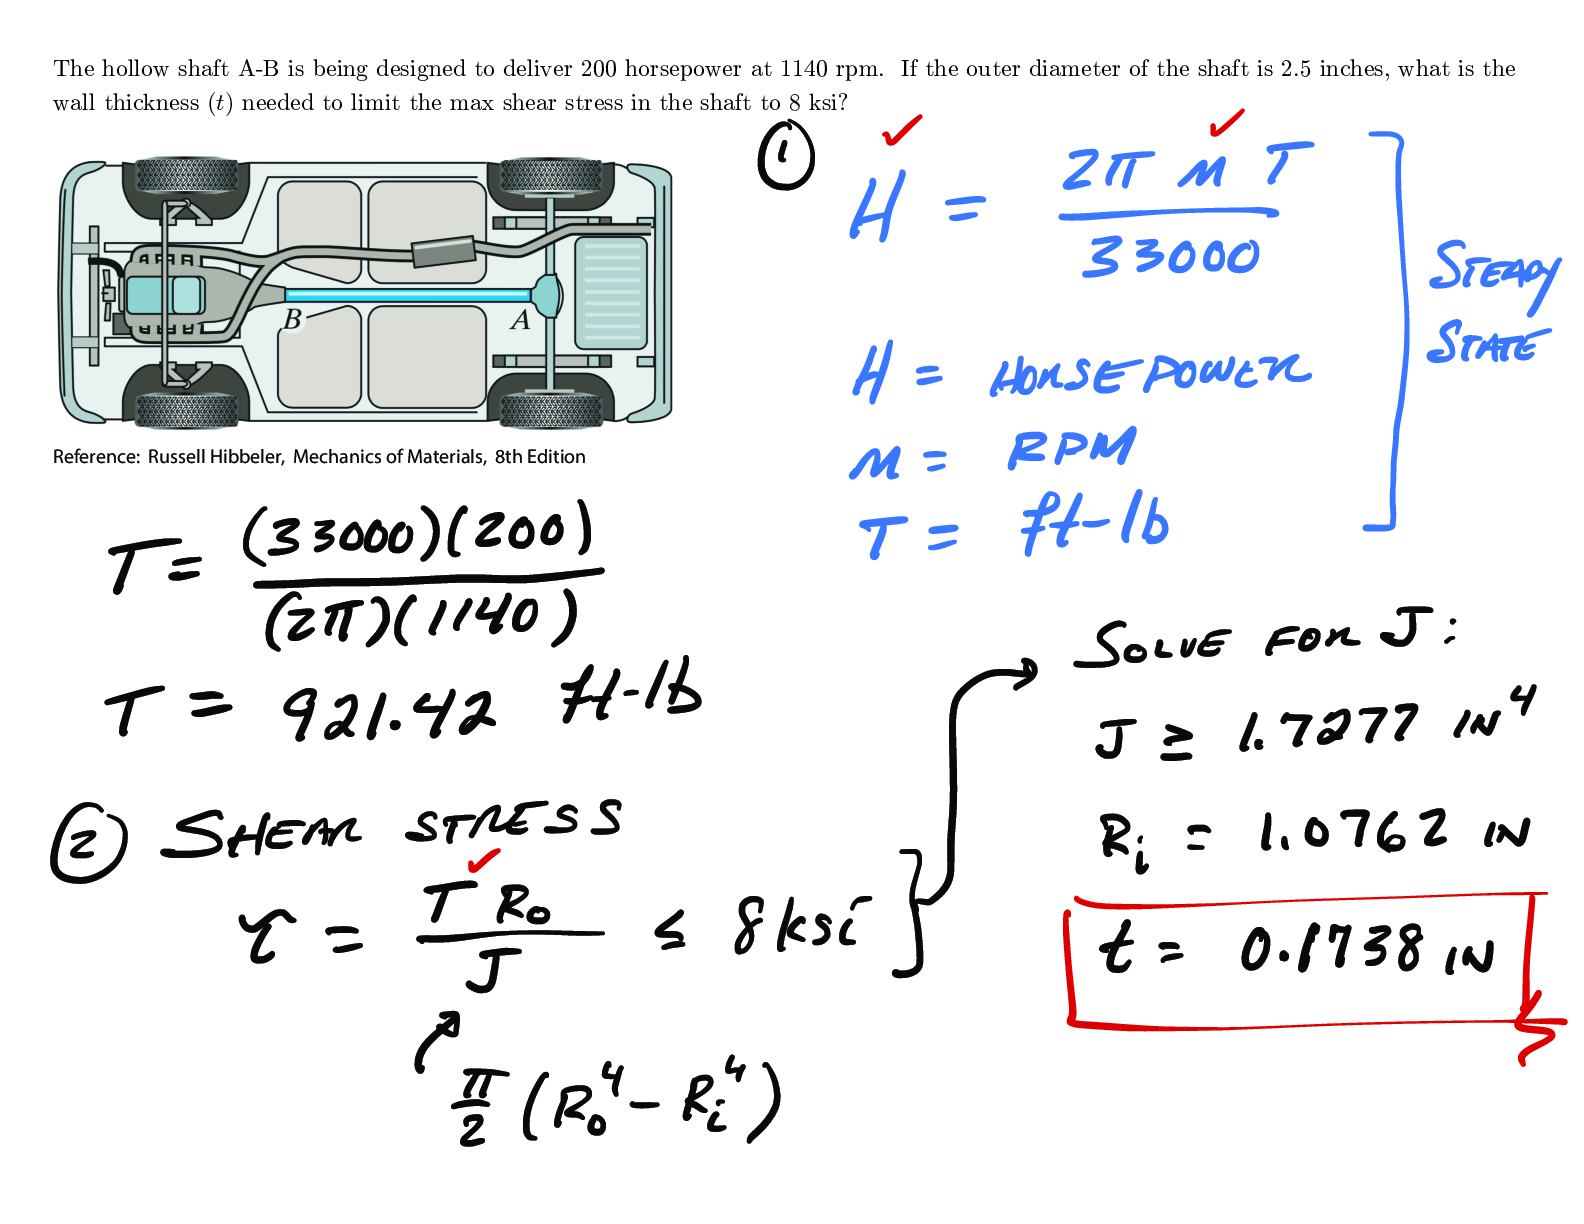 The hollow shaft A-B is being designed to deliver 200 horsepower at 1140 rpm. If the outer diameter of the shaft is 2.5 inches, what is the
wall thickness (t) needed to limit the max shear stress in the shaft to 8 ksi?
B
A
Reference: Russell Hibbeler, Mechanics of Materials, 8th Edition
① ✓ ✓
H = 2π n T / 33000
H = HORSEPOWER
n = RPM
T = ft-lb
STEADY
STATE
T = (33000)(200) / (2π)(1140)
T = 921.42 ft-lb
② SHEAR STRESS
✓
τ = T R₀ / J ≤ 8 ksi
π/2 (R₀⁴ - Rᵢ⁴)
SOLVE FOR J:
J ≥ 1.7277 IN⁴
Rᵢ = 1.0762 IN
t = 0.1738 IN